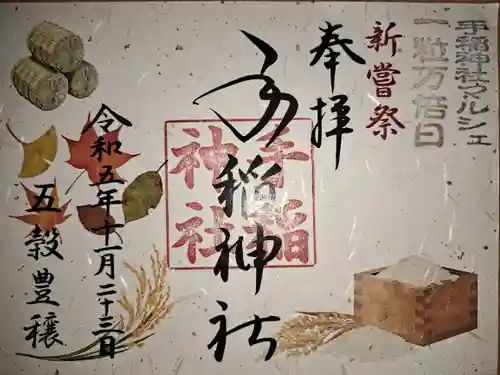 手稲神社マルシェ
一粒万倍日
新嘗祭
奉拝
手稲神社
手稲
神社
令和五年十一月二十三日
五穀豊穣